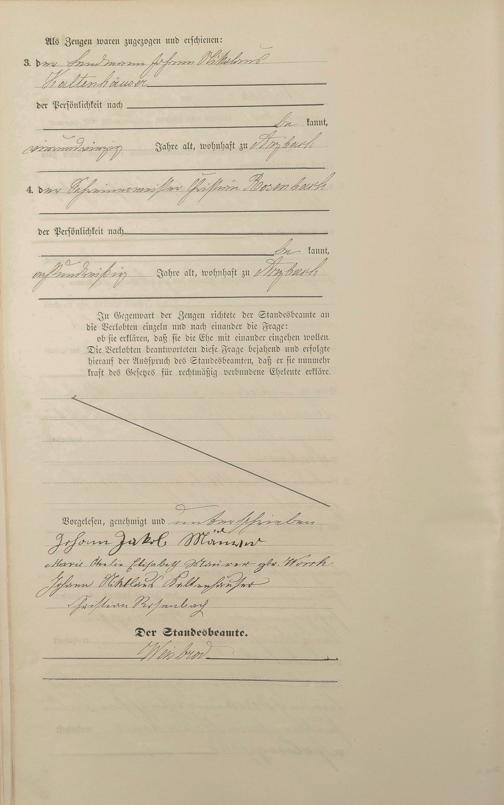 Als Zeugen waren zugezogen und erschienen:
3. der Landmann Johann Niklaus
Kaltenhäuser
der Persönlichkeit nach
be kannt,
vierundvierzig Jahre alt, wohnhaft zu Arzbach
4. der Schreinermeister Christian Rosenbach
der Persönlichkeit nach
be kannt,
achtunddreißig Jahre alt, wohnhaft zu Arzbach
In Gegenwart der Zeugen richtete der Standesbeamte an
die Verlobten einzeln und nach einander die Frage:
ob sie erklären, daß sie die Ehe mit einander eingehen wollen.
Die Verlobten beantworteten diese Frage bejahend und erfolgte
hierauf der Ausspruch des Standesbeamten, daß er sie nunmehr
kraft des Gesetzes für rechtmäßig verbundene Eheleute erkläre.
Vorgelesen, genehmigt und unterschrieben
Johann Jakob
Marie Elisabeth geb.
Johann Niklaus Kaltenhäuser
Christian Rosenbach
Der Standesbeamte.
Weisbrod